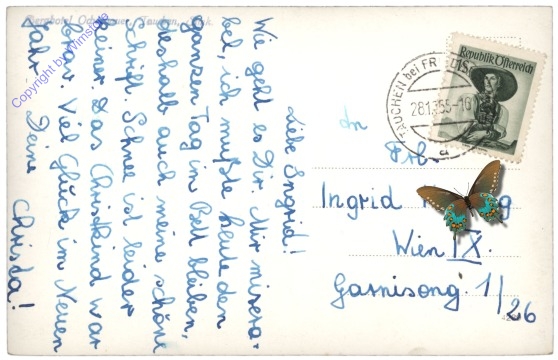 Berghotel
Tauchen,
Copyright by Wimsforte
Liebe Ingrid!
Wie geht es Dir. Mir misera-
bel, ich mußte heute den
ganzen Tag im Bett bleiben,
deshalb auch meine schöne
Schrift. Schnee ist leider
keiner. Das Christkind war
brav. Viel Glück im Neuen
Jahr. Deine Christa!
TAUCHEN bei FR
28.1.55-16
a
1S
Republik Österreich
An
Frl.
Ingrid g
Wien IX.
Garnisong. 1/26